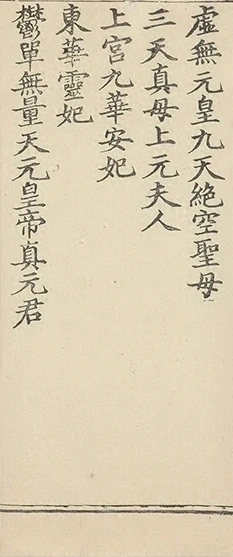 虛無元皇九天絕空聖母
三天真母上元夫人
上宮九華安妃
東華靈妃
鬱單無量天元皇帝真元君